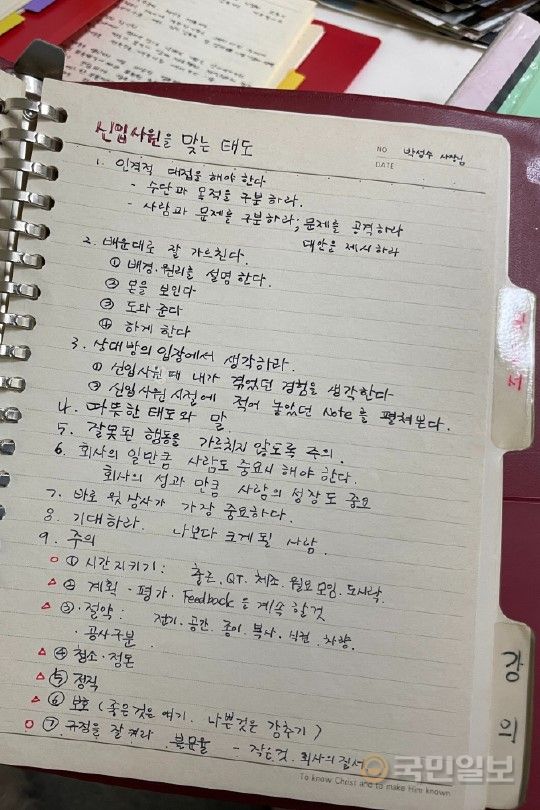 신입사원을 맞는 태도
NO 박성수 사장님
DATE
1. 인격적 대접을 해야 한다
- 수단과 목적을 구분하라.
- 사람과 문제를 구분하라; 문제를 공격하라
대안을 제시하라
2. 배운대로 잘 가르친다.
① 배경·원리를 설명한다.
② 본을 보인다
③ 도와준다
④ 하게 한다
3. 상대방의 입장에서 생각하라.
① 신입사원 때 내가 겪었던 경험을 생각한다
② 신입사원 시절에 적어 놓았던 Note를 펼쳐본다.
4. 따뜻한 태도와 말.
5. 잘못된 행동을 가르치지 않도록 주의.
6. 회사의 일만큼 사람도 중요시 해야 한다.
회사의 성과 만큼 사람의 성장도 중요
7. 바로 윗 상사가 가장 중요하다.
8. 기대하라. 나보다 크게 될 사람.
9. 주의
○ ① 시간지키기: 출근. QT. 체조. 월요모임. 도시락.
△ ② 계획·평가·Feedback을 계속 할것
△ ③ 절약: 전기. 공간. 종이. 복사. 식권. 차량.
· 공사구분
△ ④ 청소·정돈
△ ⑤ 정직
△ ⑥ 보호 (좋은것은 얘기. 나쁜것은 감추기)
○ ⑦ 규정을 잘 켜라 불문율 - 작은것. 회사의 질서
강의
국민일보
To know Christ and to make Him known